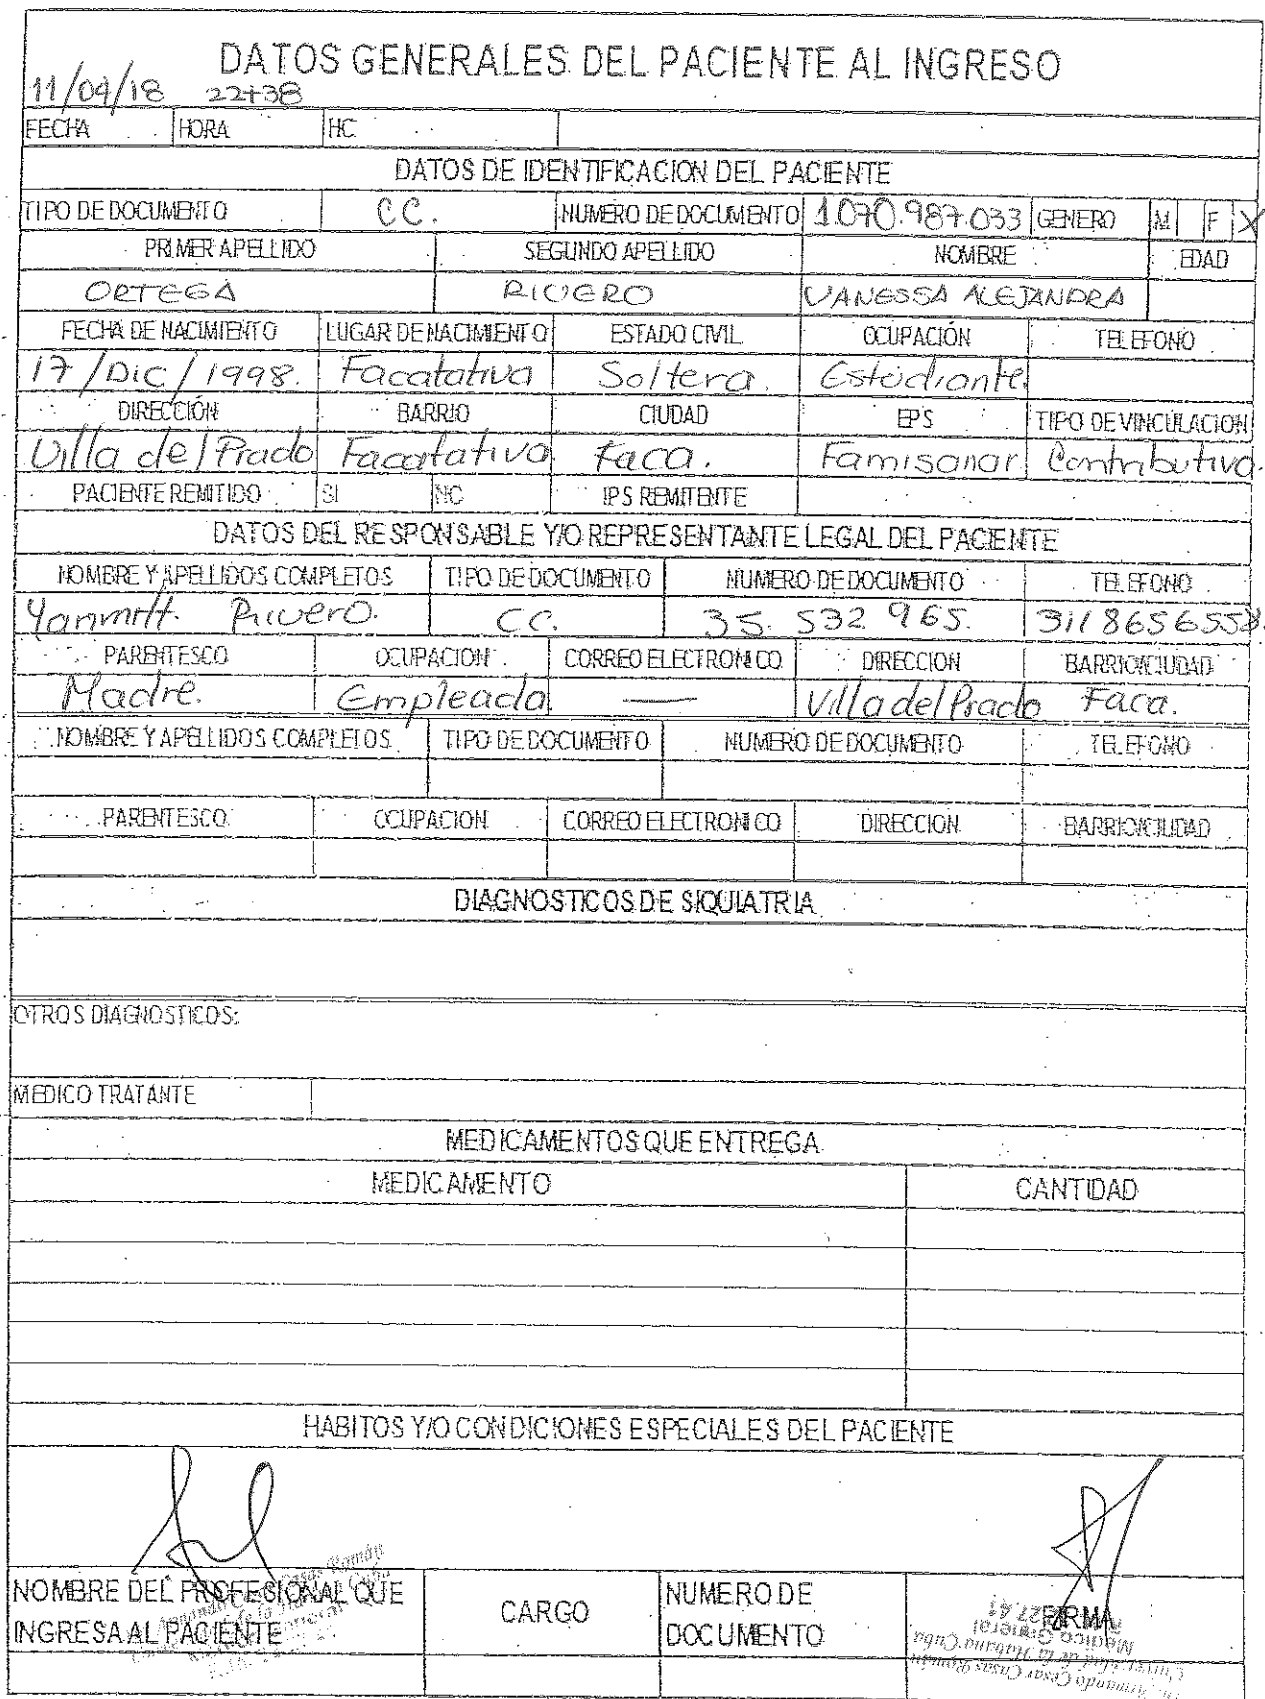 DATOS GENERALES DEL PACIENTE AL INGRESO
11/04/18 22+38
FECHA HORA HC
DATOS DE IDENTIFICACION DEL PACIENTE
TIPO DE DOCUMENTO CC. NUMERO DE DOCUMENTO 1.070.987.033 GENERO M F X
PRIMER APELLIDO SEGUNDO APELLIDO NOMBRE EDAD
ORTEGA RIVERO VANESSA ALEJANDRA
FECHA DE NACIMIENTO LUGAR DE NACIMIENTO ESTADO CIVIL OCUPACIÓN TELEFONO
17/Dic/1998. Facatativa Soltera. Estudiante.
DIRECCIÓN BARRIO CIUDAD EPS TIPO DE VINCULACION
Villa del Prado Facatativa Faca. Famisanar Contributiva.
PACIENTE REMITIDO SI NO IPS REMITENTE
DATOS DEL RESPONSABLE Y/O REPRESENTANTE LEGAL DEL PACIENTE
NOMBRE Y APELLIDOS COMPLETOS TIPO DE DOCUMENTO NUMERO DE DOCUMENTO TELEFONO
Rivero. CC. 35. 532 965.
PARENTESCO OCUPACION CORREO ELECTRONICO DIRECCION BARRIO/CIUDAD
Madre. Empleada — Villa del Prado Faca.
NOMBRE Y APELLIDOS COMPLETOS TIPO DE DOCUMENTO NUMERO DE DOCUMENTO TELEFONO
PARENTESCO OCUPACION CORREO ELECTRONICO DIRECCION BARRIO/CIUDAD
DIAGNOSTICOS DE SIQUIATRIA
OTROS DIAGNOSTICOS:
MEDICO TRATANTE
MEDICAMENTOS QUE ENTREGA
MEDICAMENTO CANTIDAD
HABITOS Y/O CONDICIONES ESPECIALES DEL PACIENTE
NOMBRE DEL PROFESIONAL QUE INGRESA AL PACIENTE CARGO NUMERO DE DOCUMENTO FIRMA
Armando Cesar Casas Román
Universidad de la Habana Cuba
Medico General